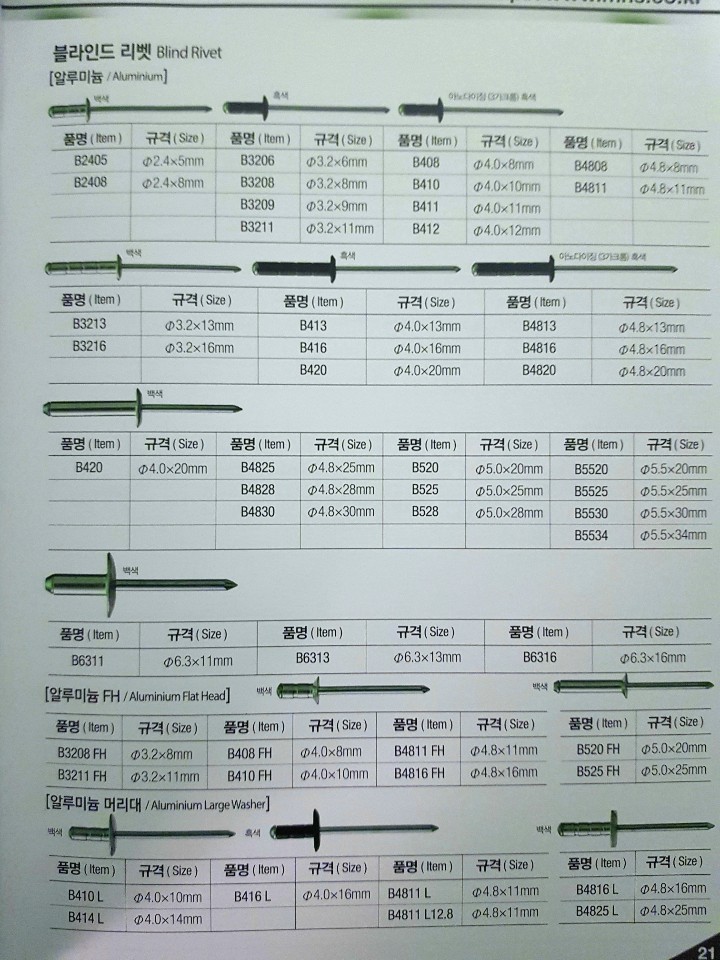 블라인드 리벳 Blind Rivet
[알루미늄 / Aluminium]
백색 흑색 아노다이징 (3가크롬) 흑색
품명 ( Item ) 규격 ( Size ) 품명 ( Item ) 규격 ( Size ) 품명 ( Item ) 규격 ( Size ) 품명 ( Item ) 규격 ( Size )
B2405 Φ2.4×5mm B3206 Φ3.2×6mm B408 Φ4.0×8mm B4808 Φ4.8×8mm
B2408 Φ2.4×8mm B3208 Φ3.2×8mm B410 Φ4.0×10mm B4811 Φ4.8×11mm
B3209 Φ3.2×9mm B411 Φ4.0×11mm
B3211 Φ3.2×11mm B412 Φ4.0×12mm
백색 흑색 아노다이징 (3가크롬) 흑색
품명 ( Item ) 규격 ( Size ) 품명 ( Item ) 규격 ( Size ) 품명 ( Item ) 규격 ( Size )
B3213 Φ3.2×13mm B413 Φ4.0×13mm B4813 Φ4.8×13mm
B3216 Φ3.2×16mm B416 Φ4.0×16mm B4816 Φ4.8×16mm
B420 Φ4.0×20mm B4820 Φ4.8×20mm
백색
품명 ( Item ) 규격 ( Size ) 품명 ( Item ) 규격 ( Size ) 품명 ( Item ) 규격 ( Size ) 품명 ( Item ) 규격 ( Size )
B420 Φ4.0×20mm B4825 Φ4.8×25mm B520 Φ5.0×20mm B5520 Φ5.5×20mm
B4828 Φ4.8×28mm B525 Φ5.0×25mm B5525 Φ5.5×25mm
B4830 Φ4.8×30mm B528 Φ5.0×28mm B5530 Φ5.5×30mm
B5534 Φ5.5×34mm
백색
품명 ( Item ) 규격 ( Size ) 품명 ( Item ) 규격 ( Size ) 품명 ( Item ) 규격 ( Size )
B6311 Φ6.3×11mm B6313 Φ6.3×13mm B6316 Φ6.3×16mm
[알루미늄 FH / Aluminium Flat Head] 백색 백색
품명 ( Item ) 규격 ( Size ) 품명 ( Item ) 규격 ( Size ) 품명 ( Item ) 규격 ( Size ) 품명 ( Item ) 규격 ( Size )
B3208 FH Φ3.2×8mm B408 FH Φ4.0×8mm B4811 FH Φ4.8×11mm B520 FH Φ5.0×20mm
B3211 FH Φ3.2×11mm B410 FH Φ4.0×10mm B4816 FH Φ4.8×16mm B525 FH Φ5.0×25mm
[알루미늄 머리대 / Aluminium Large Washer]
백색 흑색 백색
품명 ( Item ) 규격 ( Size ) 품명 ( Item ) 규격 ( Size ) 품명 ( Item ) 규격 ( Size ) 품명 ( Item ) 규격 ( Size )
B410 L Φ4.0×10mm B416 L Φ4.0×16mm B4811 L Φ4.8×11mm B4816 L Φ4.8×16mm
B414 L Φ4.0×14mm B4811 L12.8 Φ4.8×11mm B4825 L Φ4.8×25mm
21